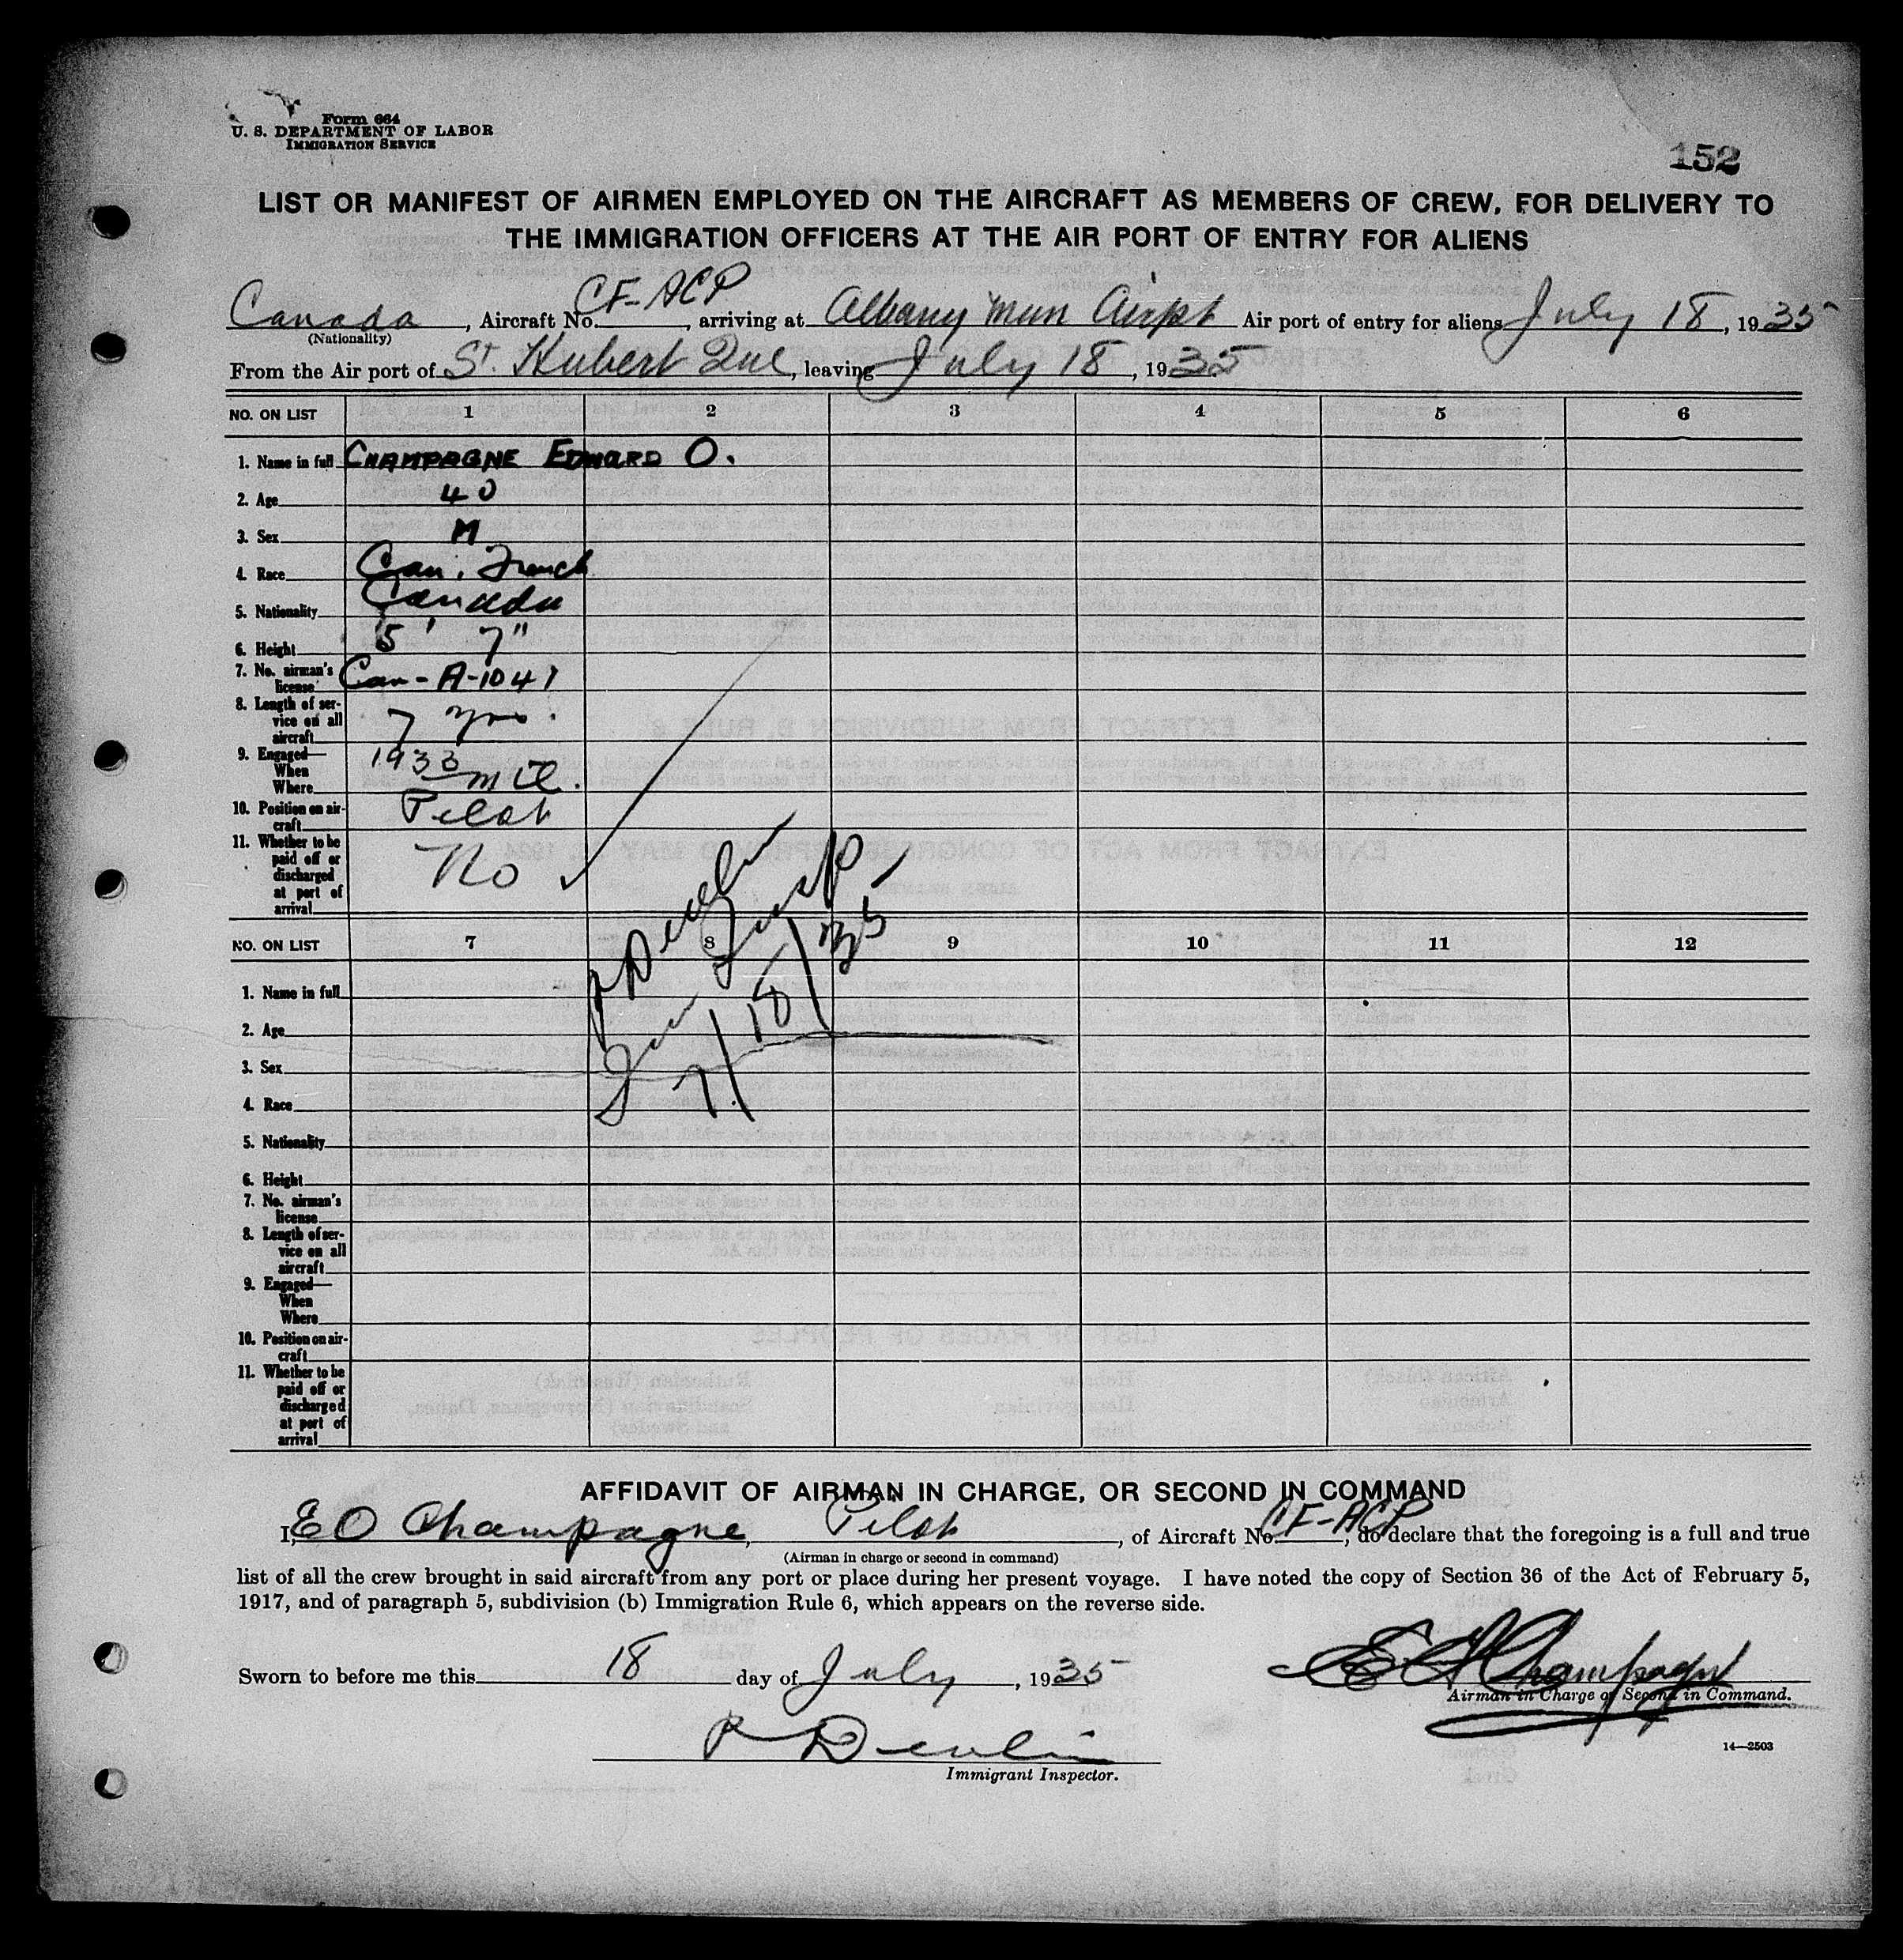 Form 664
U. S. DEPARTMENT OF LABOR
IMMIGRATION SERVICE
152
LIST OR MANIFEST OF AIRMEN EMPLOYED ON THE AIRCRAFT AS MEMBERS OF CREW, FOR DELIVERY TO
THE IMMIGRATION OFFICERS AT THE AIR PORT OF ENTRY FOR ALIENS
Canada, Aircraft No. CF-ACP, arriving at Albany Mun Airpt Air port of entry for aliens July 18, 1935
(Nationality)
From the Air port of St. Hubert Que, leaving July 18, 1935
NO. ON LIST 1 2 3 4 5 6
1. Name in full CHAMPAGNE EDWARD O.
2. Age 40
3. Sex M
4. Race Can. French
5. Nationality Canada
6. Height 5' 7"
7. No. airman's
license Can-A-1041
8. Length of ser-
vice on all
aircraft 7 yrs.
9. Engaged— 1933
When
Where Mtl.
10. Position on air-
craft Pilot
11. Whether to be
paid off or
discharged
at port of
arrival No
P Devlin
7/18/35
NO. ON LIST 7 8 9 10 11 12
1. Name in full
2. Age
3. Sex
4. Race
5. Nationality
6. Height
7. No. airman's
license
8. Length of ser-
vice on all
aircraft
9. Engaged—
When
Where
10. Position on air-
craft
11. Whether to be
paid off or
discharged
at port of
arrival
AFFIDAVIT OF AIRMAN IN CHARGE, OR SECOND IN COMMAND
I, E O Champagne, Pilot, of Aircraft No. CF-ACP, do declare that the foregoing is a full and true
(Airman in charge or second in command)
list of all the crew brought in said aircraft from any port or place during her present voyage. I have noted the copy of Section 36 of the Act of February 5,
1917, and of paragraph 5, subdivision (b) Immigration Rule 6, which appears on the reverse side.
Sworn to before me this 18 day of July, 1935
E O Champagne
Airman in Charge or Second in Command.
P Devlin
Immigrant Inspector.
14—2503